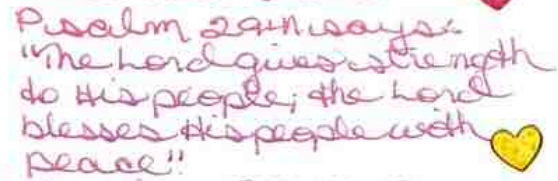 Psalm 29:11 says:
"The Lord gives strength
to His people; the Lord
blesses His people with
peace"!